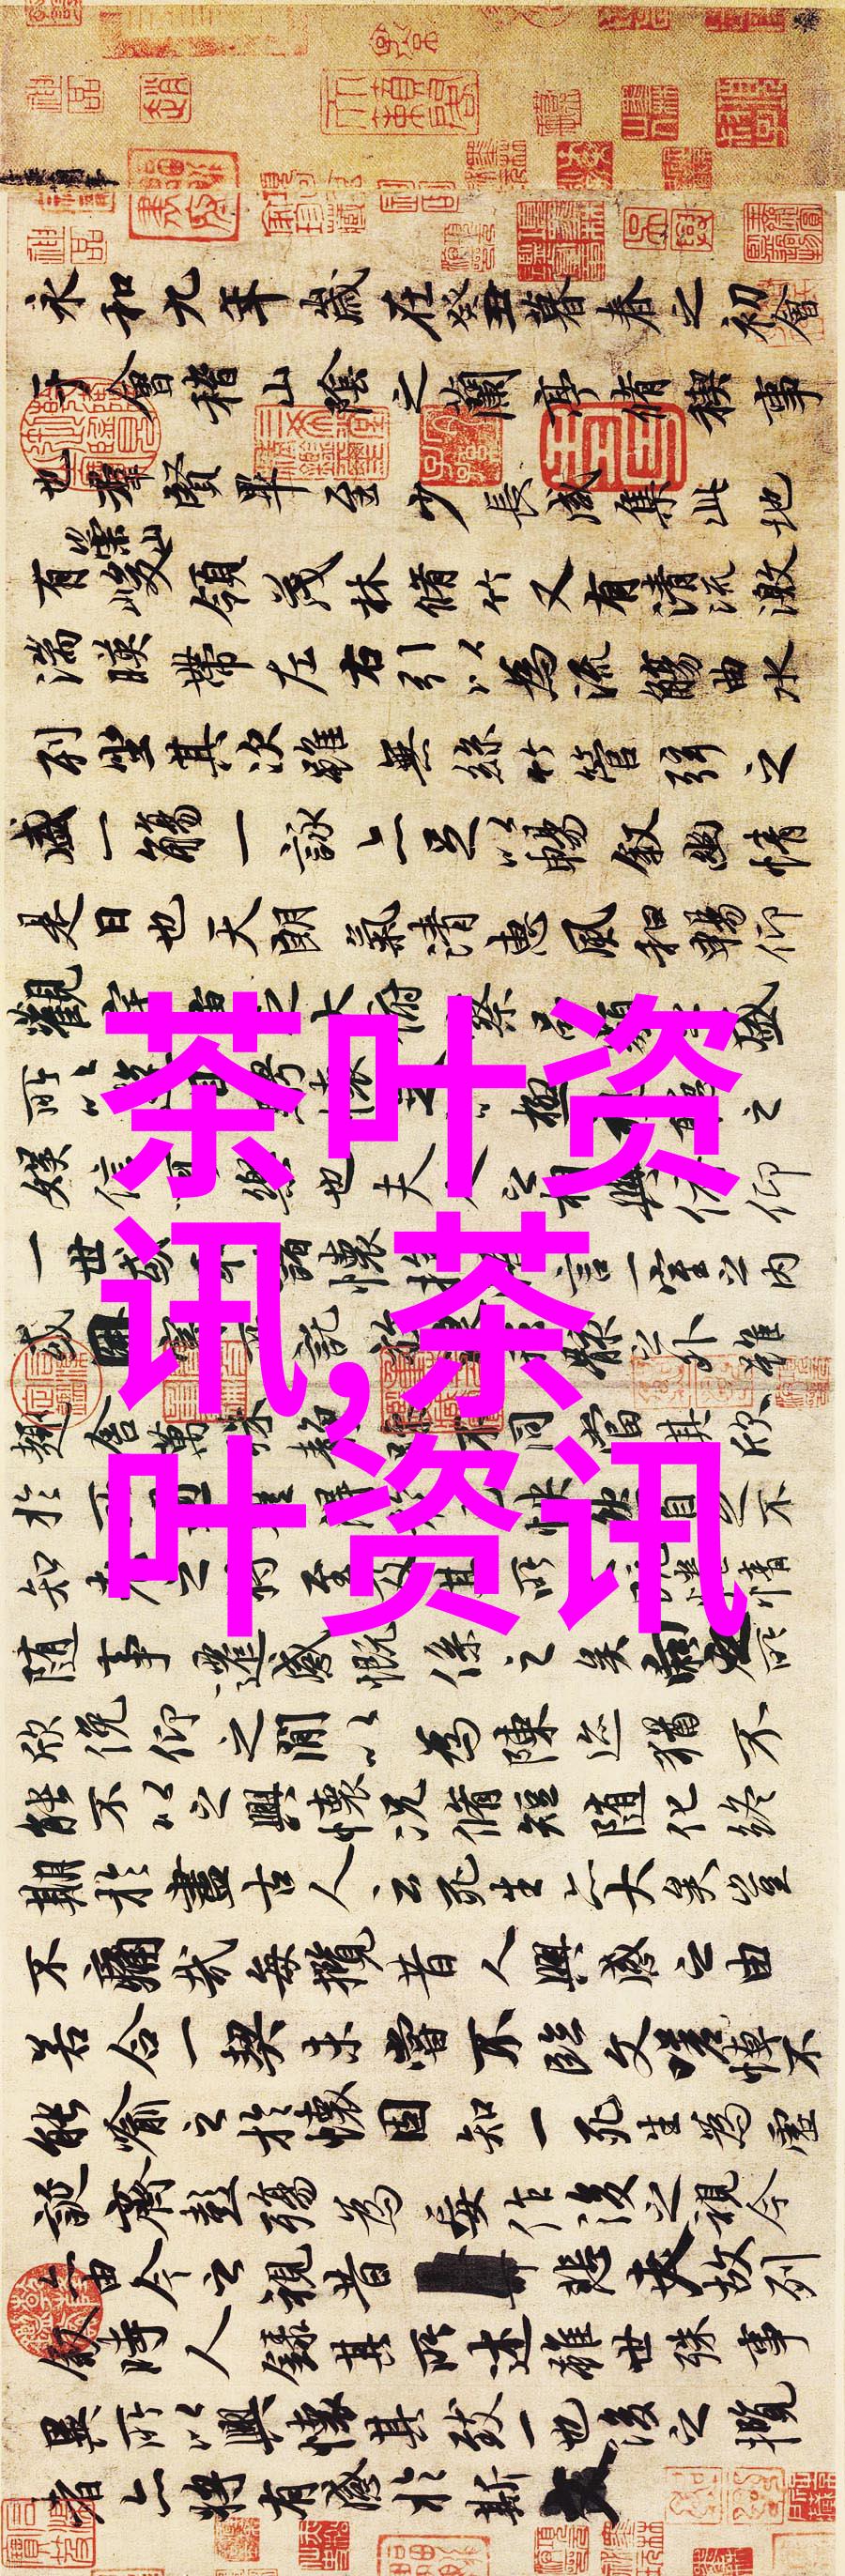 永和九年歲在癸丑暮春之初會
于會稽山陰之蘭亭脩禊事
也羣賢畢至少長咸集此地
有崇山峻領茂林脩竹又有清流激
湍暎帶左右引以為流觴曲水
列坐其次雖無絲竹管弦之
盛一觴一詠亦足以暢敘幽情
是日也天朗氣清惠風和暢仰
觀宇宙之大俯察品類之盛
茶叶资
所以遊目騁懷足以極視聽之
娛信可樂也夫人之相與俯仰
讯,茶
一世或取諸懷抱悟言一室之內
或因寄所託放浪形骸之外雖
趣舍萬殊靜躁不同當其欣
叶资讯
於所遇暫得於己快然自足不
知老之將至及其所之既惓情
隨事遷感慨係之矣向之所
欣俛仰之間以為陳迹猶不
能不以之興懷況脩短隨化終
期於盡古人云死生亦大矣豈
不痛哉每攬昔人興感之由
若合一契未嘗不臨文嗟悼不
能喻之於懷固知一死生為虛
誕齊彭殤為妄作後之視今
亦由今之視昔悲夫故列
敘時人錄其所述雖世殊事
異所以興懷其致一也後之攬
者亦將有感於斯文